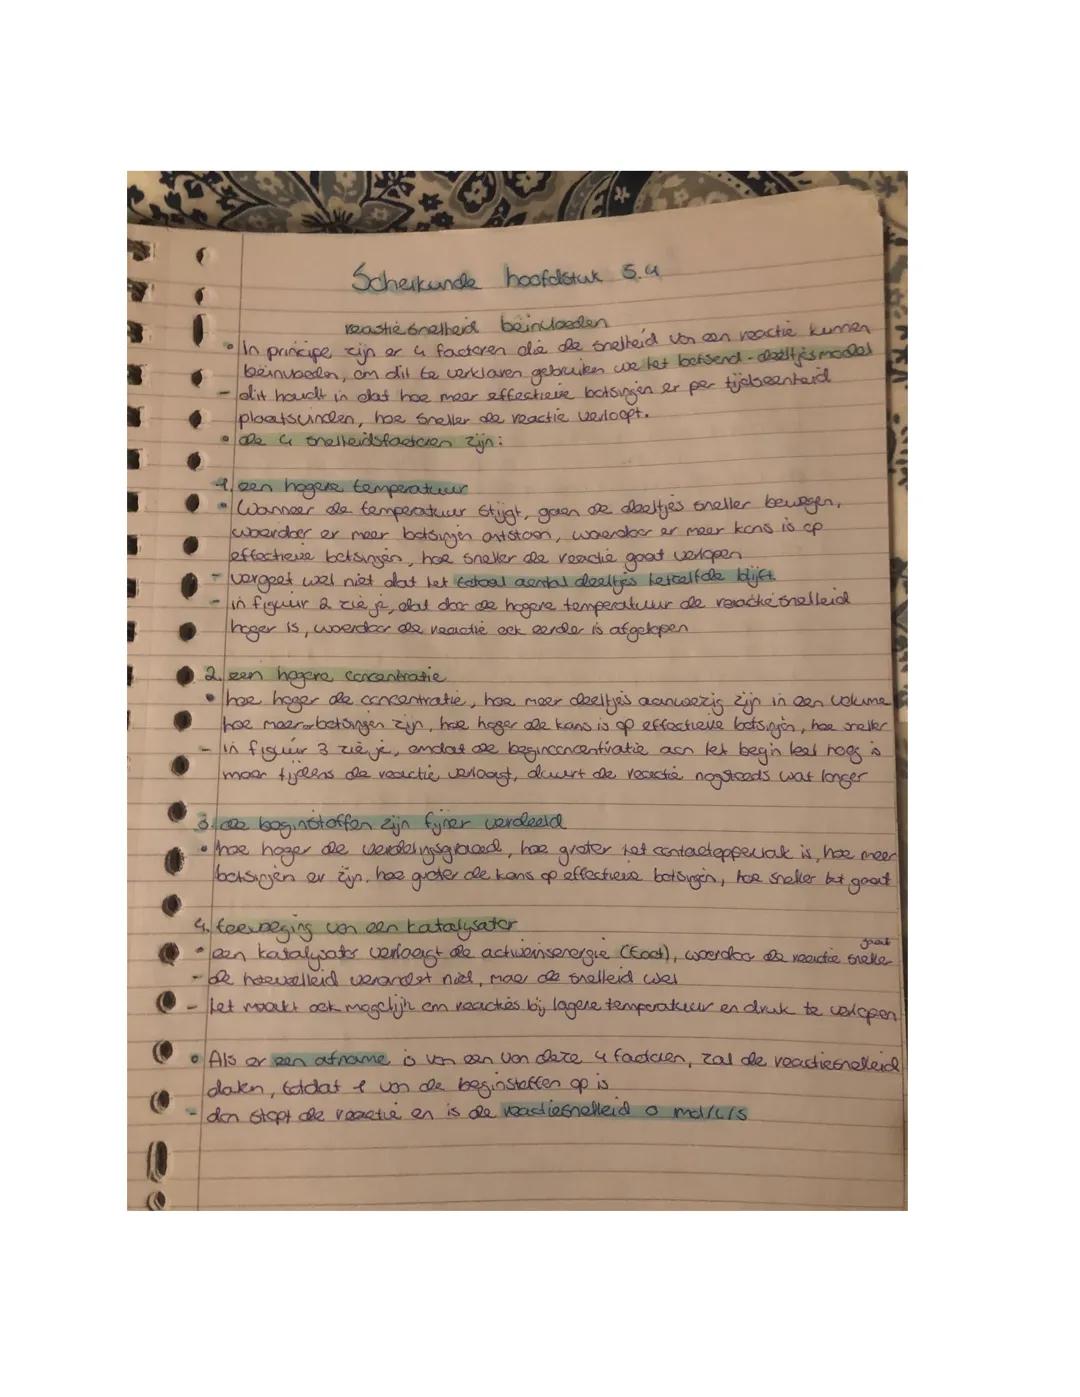 Scheikunde hoofdstuk 5.4
reactiesnelheid beïnvloeden
• In principe, zijn er 4 factoren die de snelheid von een reactie kunnen
beïnvloeden, om dit te verklaren gebruiken we het botsend-deeltjesmodel
- dit houdt in dat hoe meer effectieve botsingen er per tijdseenheid
plaatsvinden, hoe sneller de reactie verloopt.
• de 4 snelheidsfactoren zijn:
1. een hogere temperatuur
• Wanneer de temperatuur stijgt, gaan de deeltjes sneller bewegen,
waardoor er meer botsingen ontstaan, waardoor er meer kans is op
effectieve botsingen, hoe sneller de reactie gaat verlopen
- vergeet wel niet dat het totaal aantal deeltjes hetzelfde blijft.
- in figuur 2 zie je, dat door de hogere temperatuur de reactiesnelheid
hoger is, waardoor de reactie ook eerder is afgelopen
2. een hogere concentratie
• hoe hoger de concentratie, hoe meer deeltjes aanwezig zijn in een volume
hoe meer botsingen zijn, hoe hoger de kans is op effectieve botsingen, hoe sneller
- in figuur 3 zie je, omdat de beginconcentratie aan het begin heel hoog is
maar tijdens de reactie verlaagt, duurt de reactie nogsteeds wat langer
3. de beginstoffen zijn fijner verdeeld
• hoe hoger de verdelingsgraad, hoe groter het contactoppervlak is, hoe meer
botsingen er zijn, hoe groter de kans op effectieve botsingen, hoe sneller het gaat
4. toevoeging van een katalysator
• een katalysator verlaagt de activeringsenergie (Eact), waardoor de reactie sneller gaat
- de hoeveelheid verandert niet, maar de snelheid wel
- het maakt ook mogelijk om reacties bij lagere temperatuur en druk te verlopen
• Als er een afname is van een van deze 4 factoren, zal de reactiesnelheid
dalen, totdat 1 van de beginstoffen op is
- dan stopt de reactie en is de reactiesnelheid 0 mol/L/s